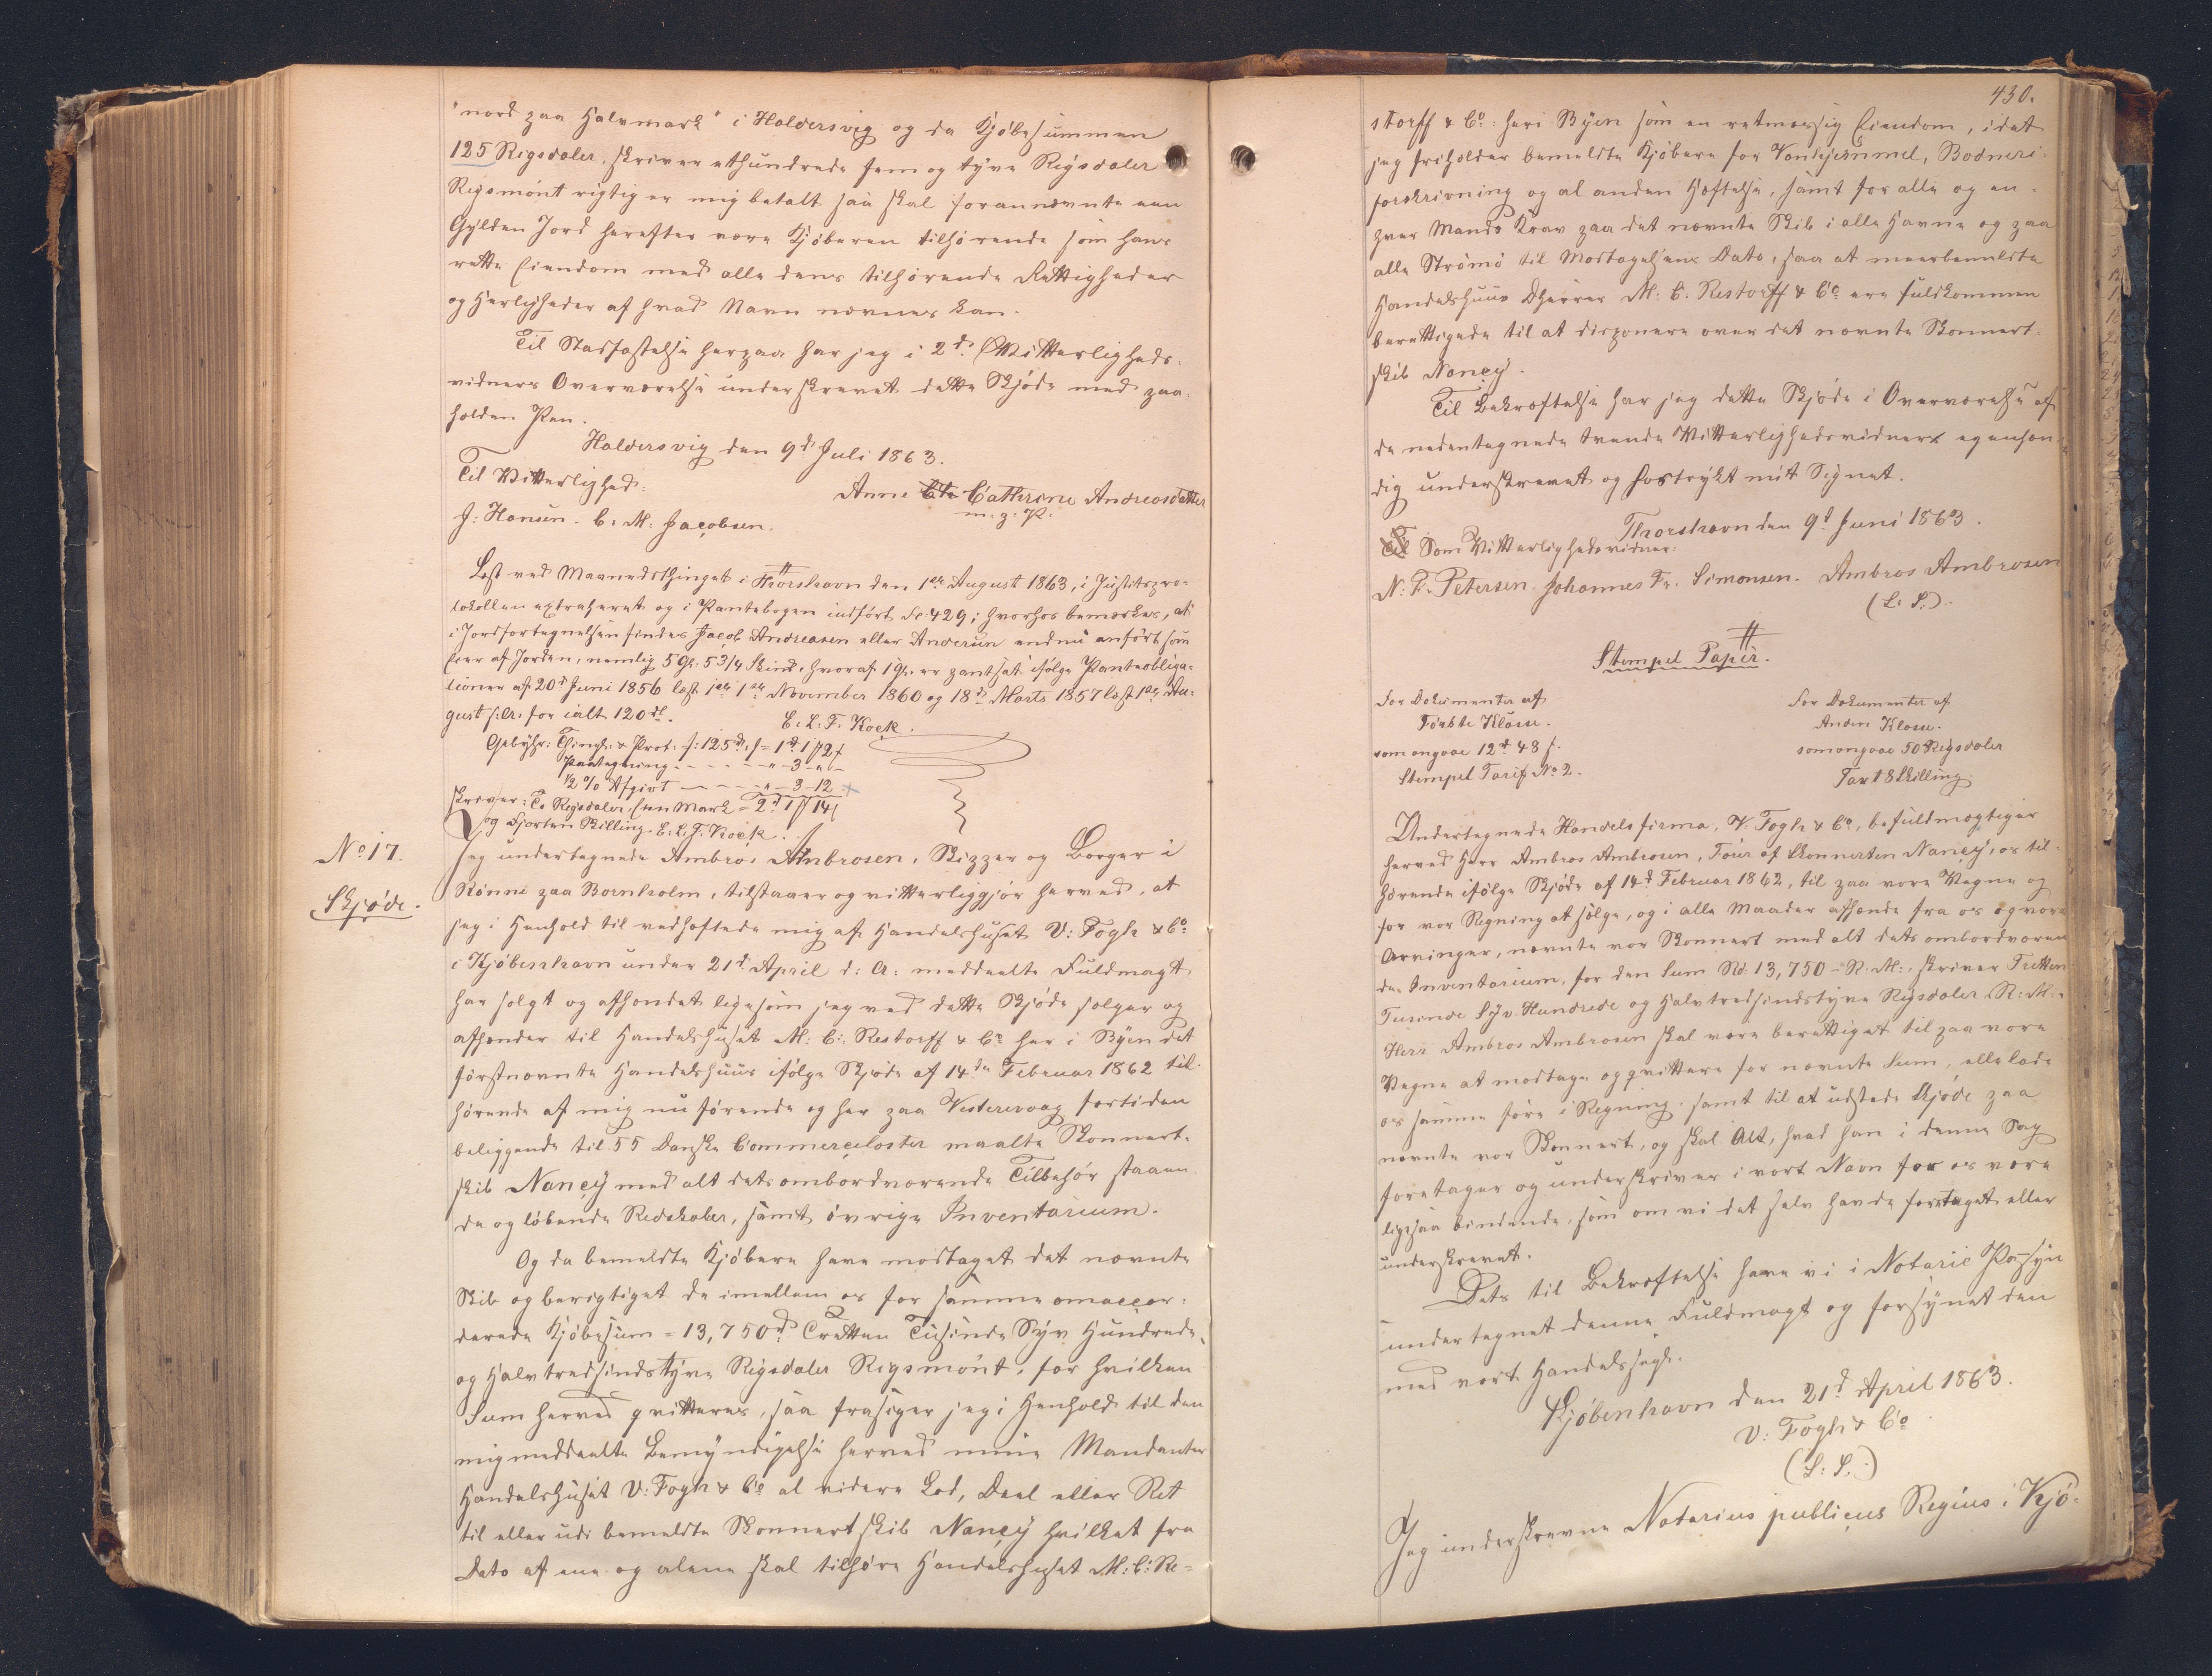 "nord paa Halvmark" i Haldersvig og da Kjøbesummen
125 Rigsdaler, skriver ethundrede fem og tyve Rigsdaler
Rigsmönt rigtig er mig betalt saa skal forannævnte een
Gylden Jord herefter være Kjøberen tilhørende som hans
rette Eiendom med alle dens tilhørende Rettigheder
og Herligheder af hvad Navn nævnes kan.
Til Stadfæstelse herpaa har jeg i 2de Vitterligheds-
vidners Overværelse underskrevet dette Skjøde med paa-
holden Pen.
Haldersvig den 9d Juli 1863.
Til Vitterlighed:
Anne Cathrine Andreasdatter
m. p. P.
J: Hansen. C: M: Jacobsen.
Læst ved Maanedsthinget i Thorshavn den 1ste August 1863, i Justitspro-
tokollen extraheret og i Pantebogen indført Fo: 429; hvorhos bemærkes, at
i Jordfortegnelsen findes Jacob Andreasen eller Andersen endnu anført som
Eier af Jorden, nemlig 5 Gl: 5 3/4 Skind, hvoraf 1 Gl. er pantsat ifølge Panteobliga-
tioner af 20d Juni 1856 læst 1ste November 1860 og 18d Marts 1857 læst 1ste Au-
gust s: A: for ialt 120 rd.
E. L. F. Kock.
Gebyhr: Thingl: & Prot: f: 125 rd: = 1 rd 1 ß 2 ß
Paategning - - - - - " - 3 - " -
1/2 % Afgivt - - - - " - 3 - 12 -
skriver: To Rigsdaler Een Mark = 2 rd 1 ß 14 ß
og fjorten Skilling. E. L. F. Kock.
No 17.
Skjøde.
Jeg undertegnede Ambros Ambrosen, Skipper og Borger i
Rönne paa Bornholm, tilstaaer og vitterliggjør herved, at
jeg i Henhold til vedhæftede mig af Handelshuset V: Fogh & Co
i Kjøbenhavn under 21d April d: A: meddeelte Fuldmagt
har solgt og afhændet ligesom jeg ved dette Skjøde sælger og
afhænder til Handelshuset M: C: Restorff & Co her i Byen det
førstnævnte Handelshuus ifølge Skjøde af 14de Februar 1862 til-
hørende af mig nu førende og her paa Vestervaag fortiden
beliggende til 55 Danske Commercelæster maalte Skonnert-
skib Nancy med alt dets ombordværende Tilbehør staaen-
de og løbende Redskaber, samt øvrige Inventarium.
Og da bemeldte Kjøbere have modtaget det nævnte
Skib og berigtiget de imellem os for samme omaccor-
derede Kjøbesum = 13,750 rd Tretten Tusinde Syv Hundrede
og Halvtredsindstyve Rigsdaler Rigsmönt, for hvilken
Sum herved qvitteres, saa frasiger jeg i Henhold til den
mig meddeelte Bemyndigelse herved mine Mandanter
Handelshuset V: Fogh & Co al videre Lod, Deel eller Ret
til eller udi bemeldte Skonnertskib Nancy hvilket fra
Dato af ene og alene skal tilhøre Handelshuset M: C: Re-
430.
storff & Co: heri Byen som en retmæssig Eiendom, idet
jeg friholder bemeldte Kjøbere for Vanhjemmel, Bodmeri-
forskrivning og al anden Hæftelse, samt for alle og en-
hver Mands Krav paa det nævnte Skib i alle Havne og paa
alle Strømme til Modtagelsens Dato, saa at meerbemeldte
Handelshuus DHerrer M: C: Restorff & Co ere fuldkommen
berettigede til at disponere over det nævnte Skonnert-
skib Nancy.
Til Bekræftelse har jeg dette Skjøde i Overværelse af
de nedentegnede tvende Vitterlighedsvidner egenhæn-
dig underskrevet og fostrykt mit Signet.
Thorshavn den 9d Juni 1863.
Til Som Vitterlighedsvidner:
N: P. Petersen. Johannes Fr. Simonsen. Ambros Ambrosen
(L: S:).
Stempel Papir.
For Dokumenter af
Første Klasse.
som angaae 12 rd 48 ß.
Stempel Tarif No 2.
For Dokumenter af
Anden Klasse.
som angaae 50 Rigsdaler
Taxt 8 Skilling
Undertegnede Handelsfirma, V. Fogh & Co, befuldmægtiger
herved Herr Ambros Ambrosen, Fører af Skonnerten Nancy, os til-
hørende ifølge Skjøde af 14d Februar 1862, til paa vore Vegne og
for vor Regning at sælge, og i alle Maader afhænde fra os og vore
Arvinger, nævnte vor Skonnert med alt dets ombordværen-
de Inventarium, for den Sum Rd: 13,750 - R. M:, skriver Tretten
Tusinde Syv Hundrede og Halvtredsindstyve Rigsdaler R: M:.
Herr Ambros Ambrosen skal være berettiget til paa vore
Vegne at modtage og qvittere for nævnte Sum, eller lade
os samme føre i Regning, samt til at udstede Skjøde paa
nævnte vor Skonnert, og skal Alt, hvad han i denne Sag
foretager og underskriver i vort Navn for os være
ligesaa bindende, som om vi det selv havde foretaget eller
underskrevet.
Dets til Bekræftelse have vi i Notarie Paasyn
undertegnet denne Fuldmagt og forsynet den
med vort Handelssegl.
Kjøbenhavn den 21d April 1863.
V: Fogh & Co
(L: S.)
Jeg underskrevne Notarius publicus Regius i Kjø-